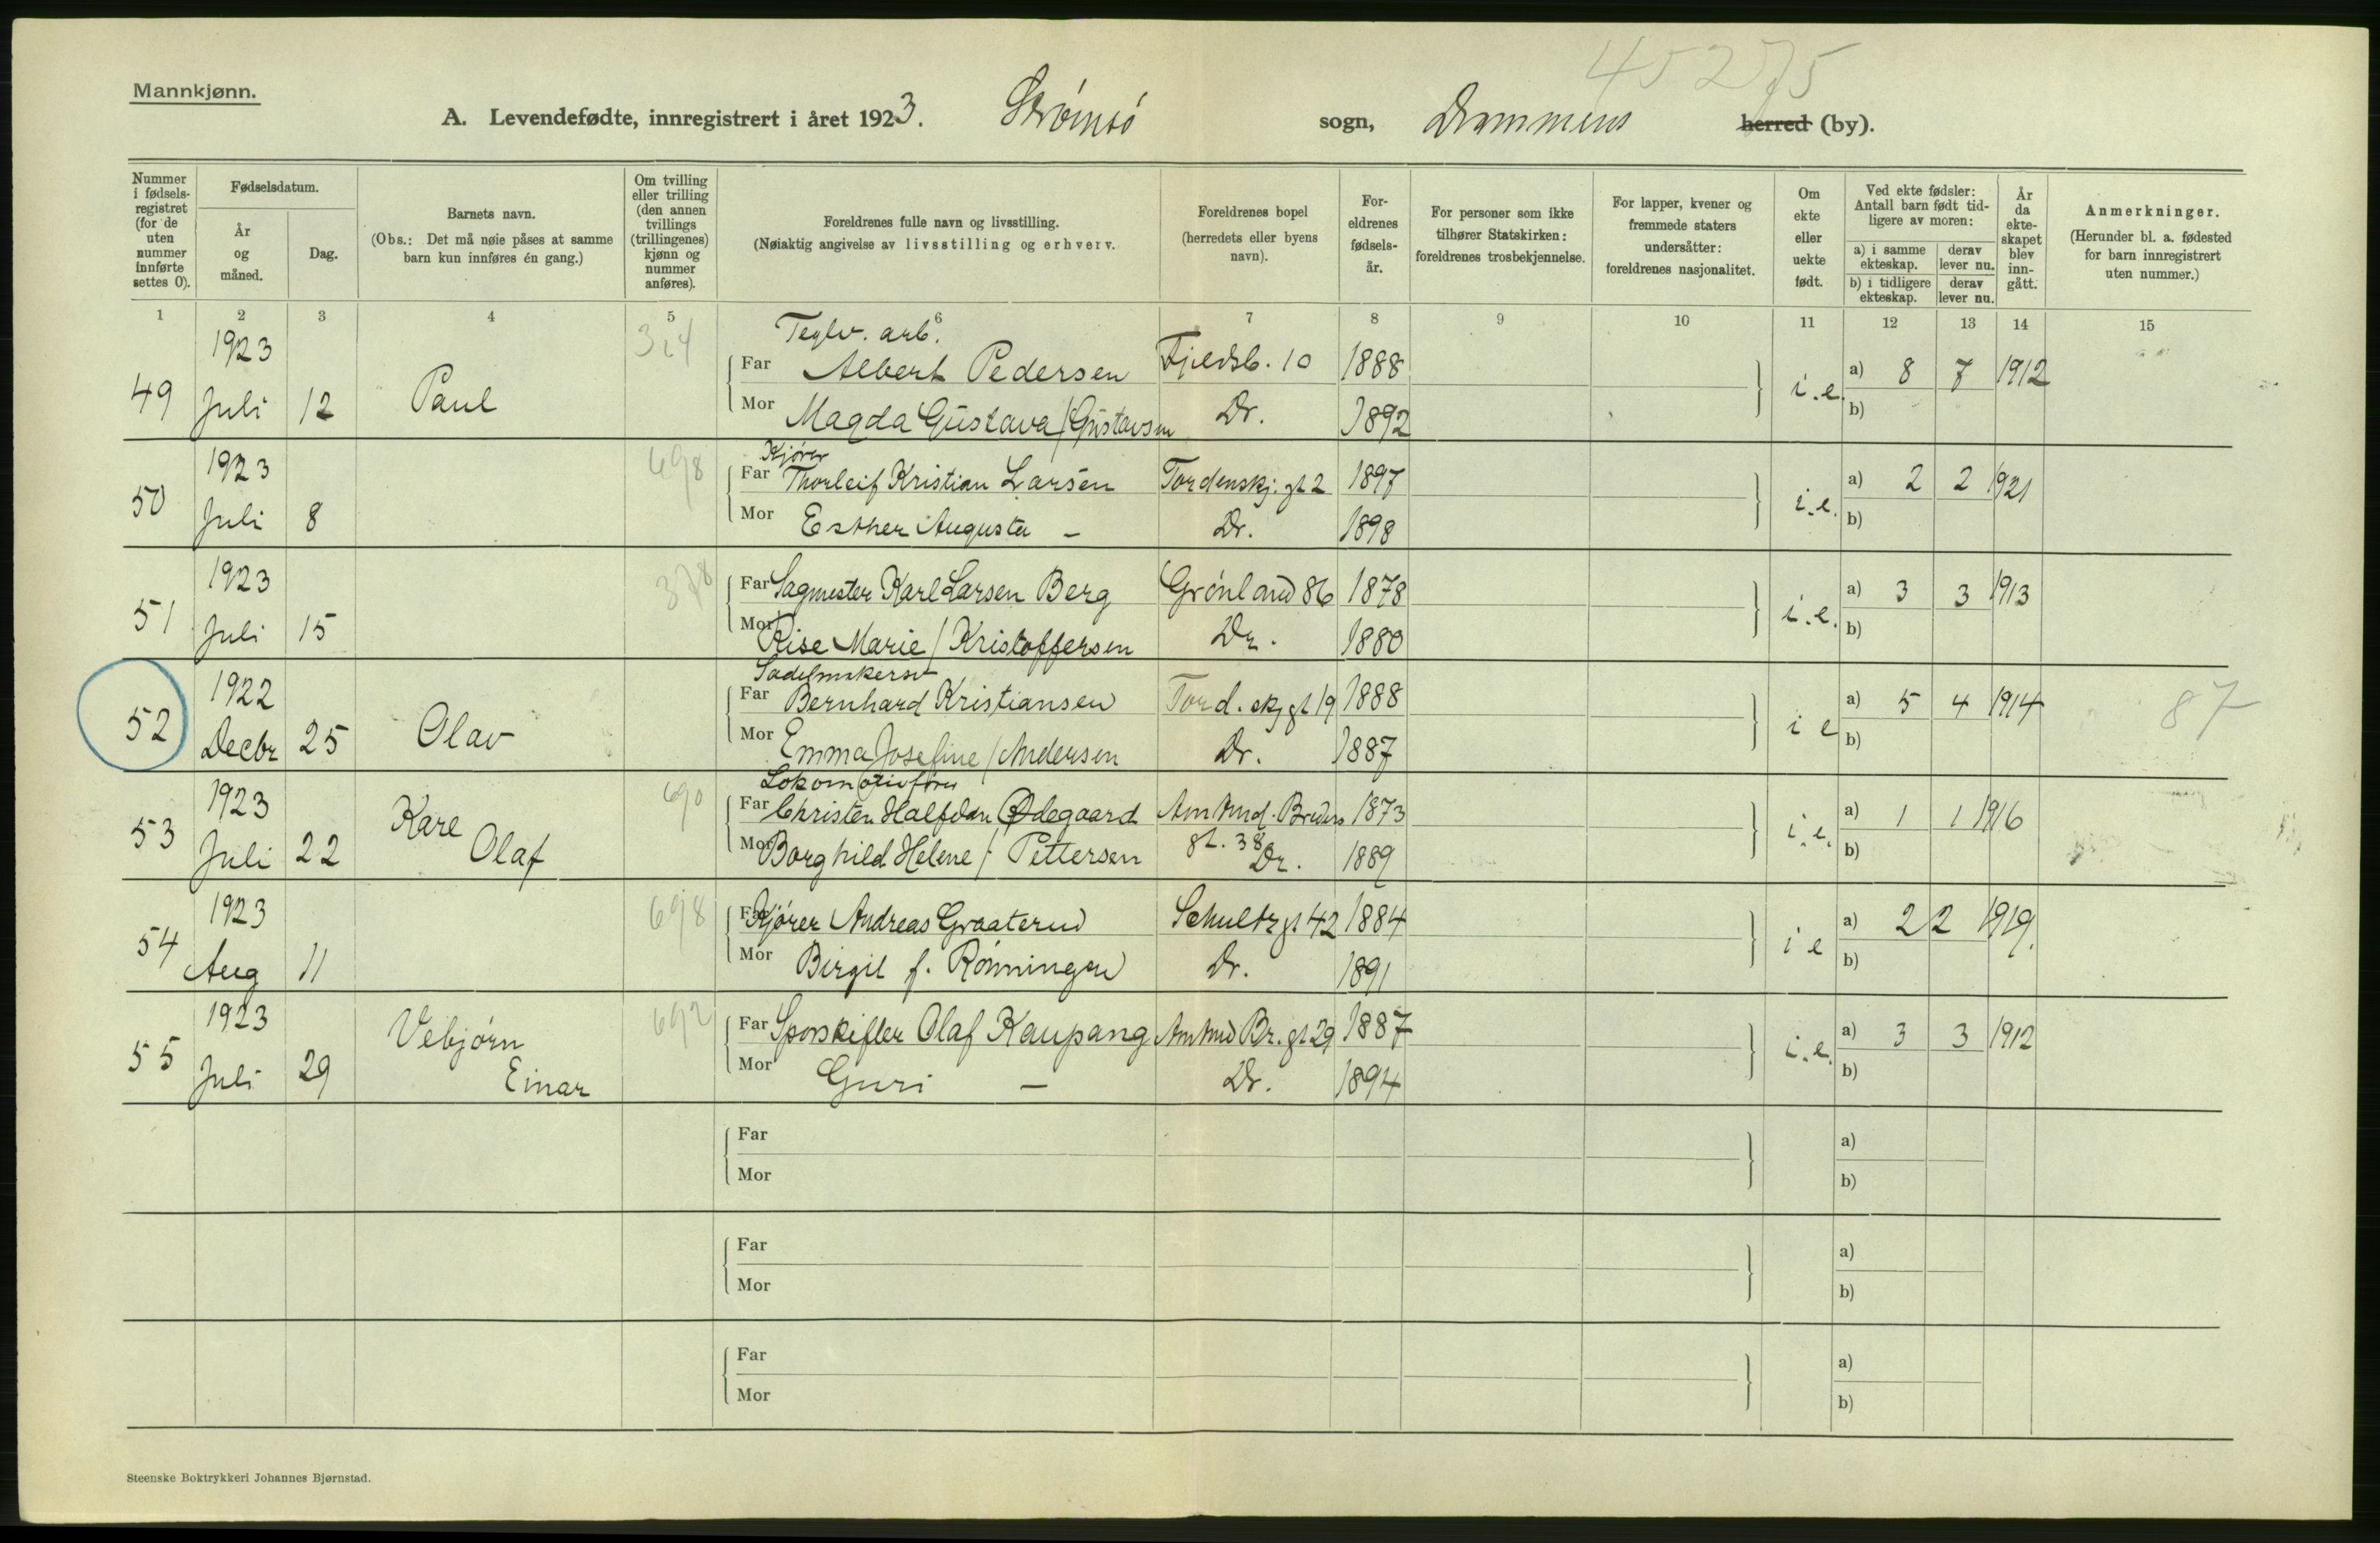 45275
Mannkjønn.
A. Levendefødte, innregistrert i året 1923. Strømsö sogn, Drammens herred (by).
Nummer i fødsels-registret (for de uten nummer innførte settes 0).
Fødselsdatum.
År og måned.
Dag.
Barnets navn.
(Obs.: Det må nøie påses at samme barn kun innføres én gang.)
Om tvilling eller trilling (den annen tvillings (trillingenes) kjønn og nummer anføres).
Foreldrenes fulle navn og livsstilling.
(Nøiaktig angivelse av livsstilling og erhverv.
Foreldrenes bopel (herredets eller byens navn).
For-eldrenes fødsels-år.
For personer som ikke tilhører Statskirken: foreldrenes trosbekjennelse.
For lapper, kvener og fremmede staters undersåtter: foreldrenes nasjonalitet.
Om ekte eller uekte født.
Ved ekte fødsler: Antall barn født tid-ligere av moren:
a) i samme ekteskap.
derav lever nu.
b) i tidligere ekteskap.
derav lever nu.
År da ekte-skapet blev inn-gått.
Anmerkninger.
(Herunder bl. a. fødested for barn innregistrert uten nummer.)
1 2 3 4 5 6 7 8 9 10 11 12 13 14 15
49 1923 Juli 12 Paul 324
Teglv. arb.
Far Albert Pedersen Fjeldsb. 10 1888 i.e. a) 8 7 1912
Mor Magda Gustava / Gustavsen Dr. 1892 b)
50 1923 Juli 8 698
Kjører
Far Thorleif Kristian Larsen Tordenskj. gt 2 1897 i.e. a) 2 2 1921
Mor Esther Augusta – Dr. 1898 b)
51 1923 Juli 15 378
Far Sagmester Karl Larsen Berg Grönland 86 1878 i.e. a) 3 3 1913
Mor Rise Marie / Kristoffersen Dr. 1880 b)
52 1922 Decbr 25 Olav
Sadelmakersv
Far Bernhard Kristiansen Tord. skj gt 19 1888 i e a) 5 4 1914 87
Mor Emma Josefine / Andersen Dr. 1887 b)
53 1923 Juli 22 Kare Olaf 690
Lokomotivförer
Far Christen Halfdan Ødegaard Amtmd. Breders 1873 i.e. a) 1 1 1916
Mor Borghild Helene / Pettersen gt. 38 Dr. 1889 b)
54 1923 Aug 11 698
Far Kjörer Andreas Graaterud Schultz gt 42 1884 i e a) 2 2 1919.
Mor Birgit f. Rönningen Dr. 1891 b)
55 1923 Juli 29 Vebjörn Einar 692
Far Sporskifter Olaf Kaupang Amtmd Br. gt 29 1887 i.e. a) 3 3 1912
Mor Guri – Dr. 1894 b)
Far a)
Mor b)
Far a)
Mor b)
Far a)
Mor b)
Steenske Boktrykkeri Johannes Bjørnstad.